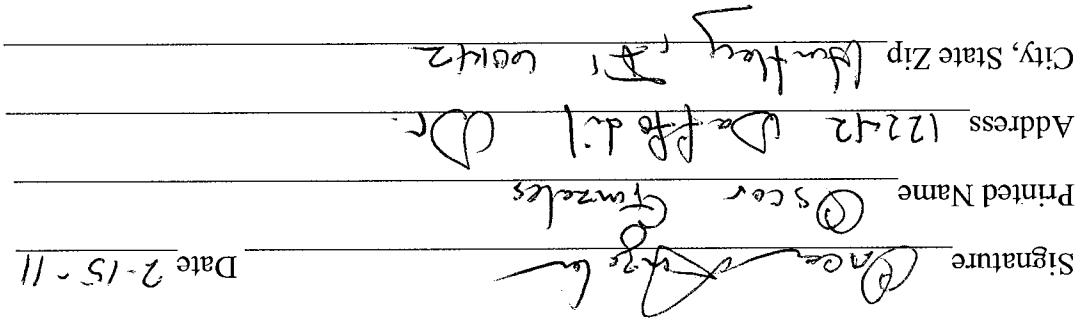 Signature Oscar Gonzales Date 2-15-11
Printed Name Oscar Gonzales
Address 12242 Daffodil Dr.
City, State Zip Huntley, Il 60142